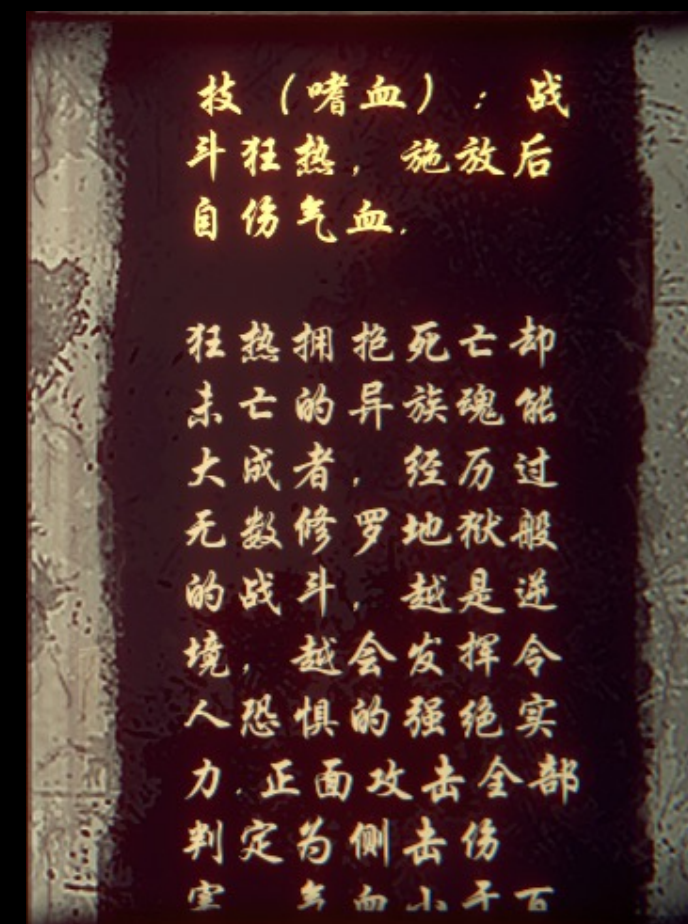 技（嗜血）：战
斗狂热，施放后
自伤气血.
狂热拥抱死亡却
未亡的异族魂能
大成者，经历过
无数修罗地狱般
的战斗，越是逆
境，越会发挥令
人恐惧的强绝实
力.正面攻击全部
判定为侧击伤
害，气血小于百